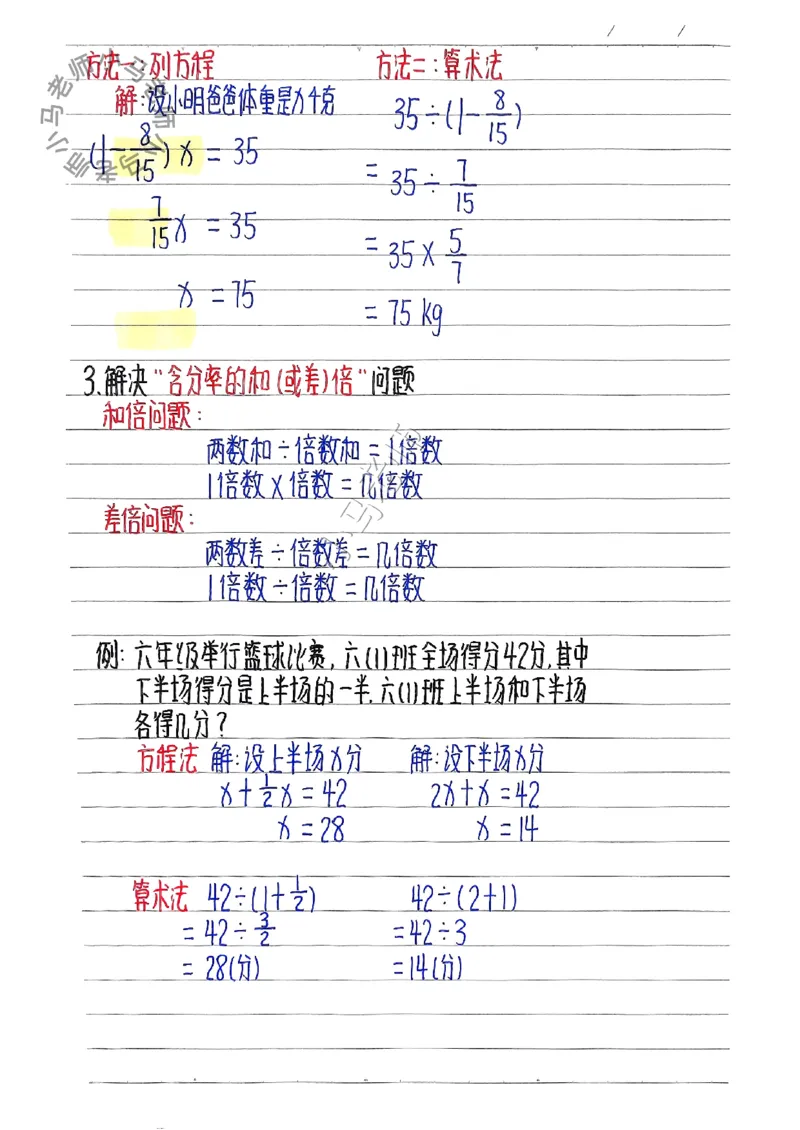 方法一:列方程
解:设小明爸爸体重是x千克
(1-8/15)x=35
7/15x=35
x=75
方法二:算术法
35÷(1-8/15)
=35÷7/15
=35×5/7
=75kg
3.解决"含分率的和(或差)倍"问题
和倍问题:
两数和÷倍数和=1倍数
1倍数×倍数=几倍数
差倍问题:
两数差÷倍数差=几倍数
1倍数÷倍数=几倍数
例:六年级举行篮球比赛,六(1)班全场得分42分,其中
下半场得分是上半场的一半.六(1)班上半场和下半场
各得几分?
方程法 解:设上半场x分 解:设下半场x分
x+1/2x=42 2x+x=42
x=28 x=14
算术法 42÷(1+1/2) 42÷(2+1)
=42÷3/2 =42÷3
=28(分) =14(分)
小马老师
小马老师
小马老师